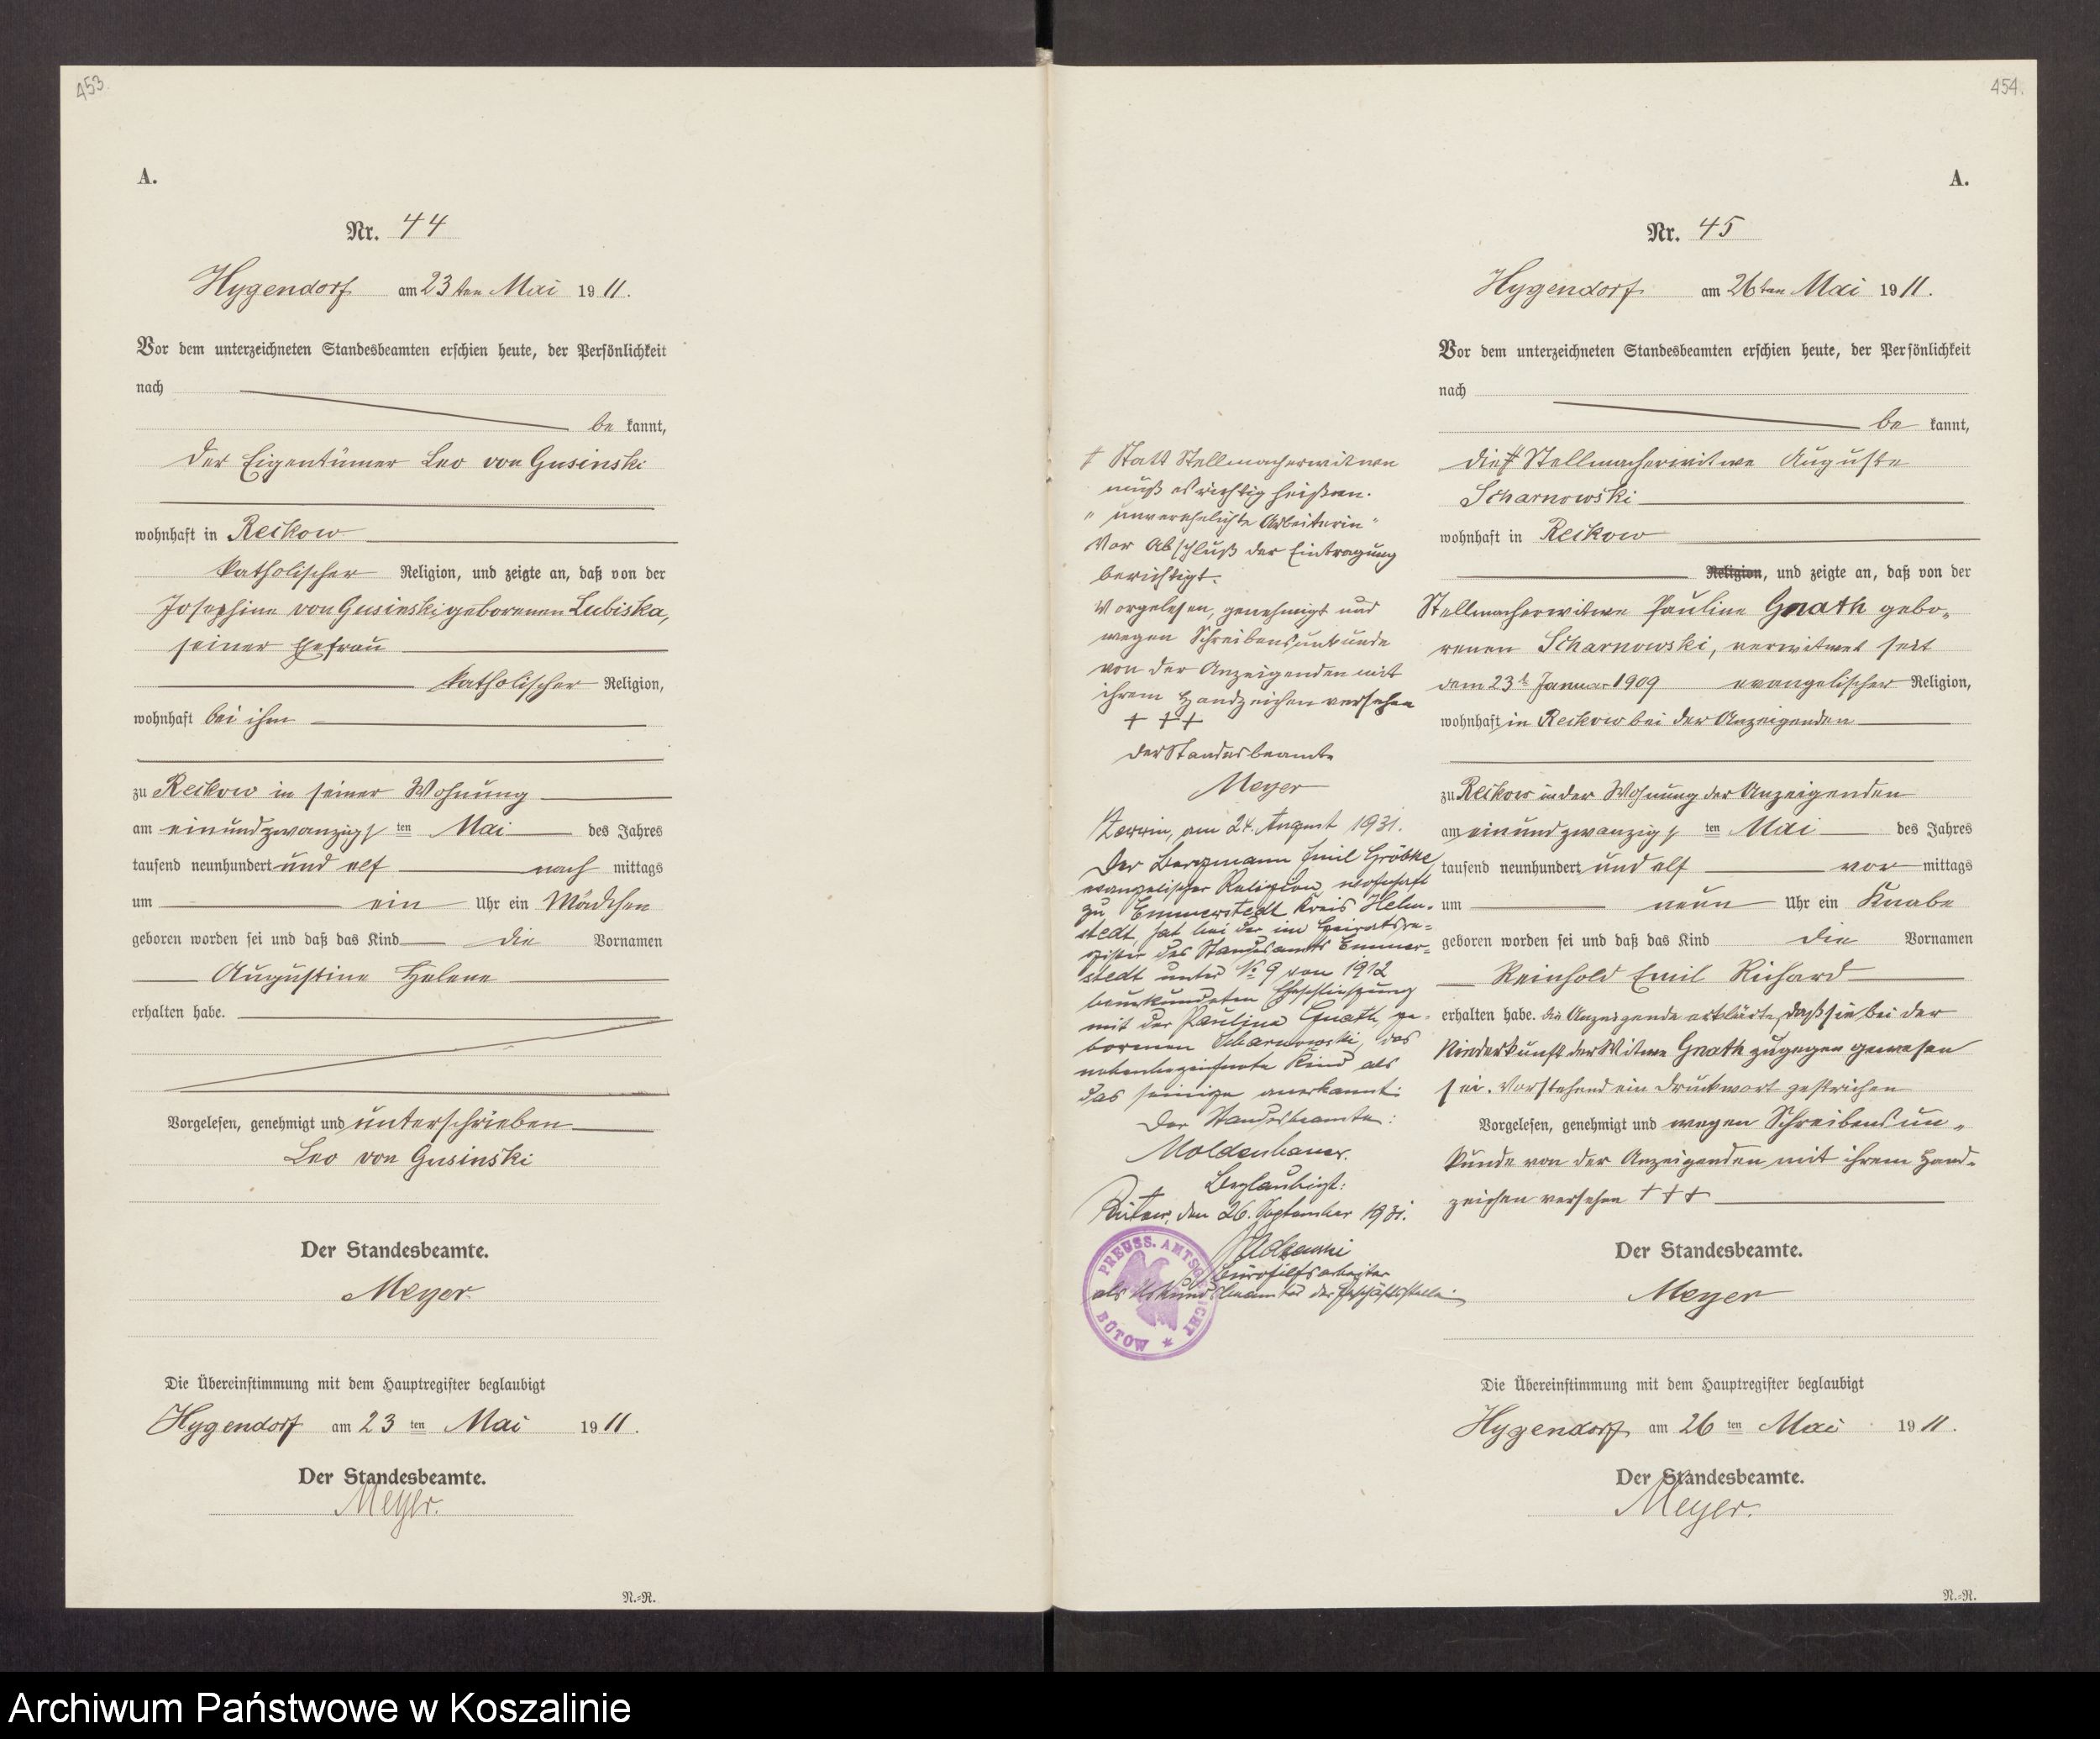 453.
A.
Nr. 44
Hygendorf am 23ten Mai 1911.
Vor dem unterzeichneten Standesbeamten erschien heute, der Persönlichkeit
nach
be kannt,
der Eigentümer Leo von Gusinski
wohnhaft in Reckow
katholischer Religion, und zeigte an, daß von der
Josephine von Gusinski geborenen Lubiska,
seiner Ehefrau
katholischer Religion,
wohnhaft bei ihm
zu Reckow in seiner Wohnung
am einundzwanzigsten Mai des Jahres
tausend neunhundert und elf nach mittags
um ein Uhr ein Mädchen
geboren worden sei und daß das Kind die Vornamen
Augustine Helene
erhalten habe.
Vorgelesen, genehmigt und unterschrieben
Leo von Gusinski
Der Standesbeamte.
Meyer
Die Übereinstimmung mit dem Hauptregister beglaubigt
Hygendorf am 23ten Mai 1911.
Der Standesbeamte.
Meyer.
N.=R.
454.
A.
Nr. 45
Hygendorf am 26ten Mai 1911.
Vor dem unterzeichneten Standesbeamten erschien heute, der Persönlichkeit
nach
be kannt,
die ‡ Stellmacherwitwe Auguste
Scharnowski
wohnhaft in Reckow
Religion, und zeigte an, daß von der
Stellmacherwitwe Pauline Gnath gebo-
renen Scharnowski, verwitwet seit
dem 23t Januar 1909 evangelischer Religion,
wohnhaft in Reckow bei der Anzeigenden
zu Reckow in der Wohnung der Anzeigenden
am einundzwanzigsten Mai des Jahres
tausend neunhundert und elf vor mittags
um neun Uhr ein Knabe
geboren worden sei und daß das Kind die Vornamen
Reinhold Emil Richard
erhalten habe. die Anzeigende erklärte, daß sie bei der
Niederkunft der Witwe Gnath zugegen gewesen
sei. Vorstehend ein Druckwort gestrichen
Vorgelesen, genehmigt und wegen Schreibensun-
kunde von der Anzeigenden mit ihrem Hand-
zeichen versehen + + +
Der Standesbeamte.
Meyer
Die Übereinstimmung mit dem Hauptregister beglaubigt
Hygendorf am 26ten Mai 1911.
Der Standesbeamte.
Meyer.
N.=R.
‡ Statt Stellmacherwitwe
muß es richtig heißen.
"unverehelichte Arbeiterin"
Vor Abschluß der Eintragung
berichtigt.
Vorgelesen, genehmigt und
wegen Schreibensunkunde
von der Anzeigenden mit
ihrem Handzeichen versehen
+ + +
Der Standesbeamte
Meyer
am 24. August 1931.
Der Bergmann Emil Gröbke,
evangelischer Religion, wohnhaft
zu Emmerstedt Kreis Helm-
stedt hat bei der im Heiratsre-
gister des Standesamts Emmer-
stedt unter No 9 von 1912
beurkundeten Eheschließung
mit der Pauline Gnath, ge-
borenen Scharnowski, das
nebenbezeichnete Kind als
das seinige anerkannt.
Der Standesbeamte:
Moldenhauer.
Beglaubigt:
Bütow, den 26. September 1931.
Bürohilfsarbeiter
als Urkundsbeamter der Geschäftsstelle
PREUSS. AMTSGERICHT
BÜTOW *
Archiwum Państwowe w Koszalinie